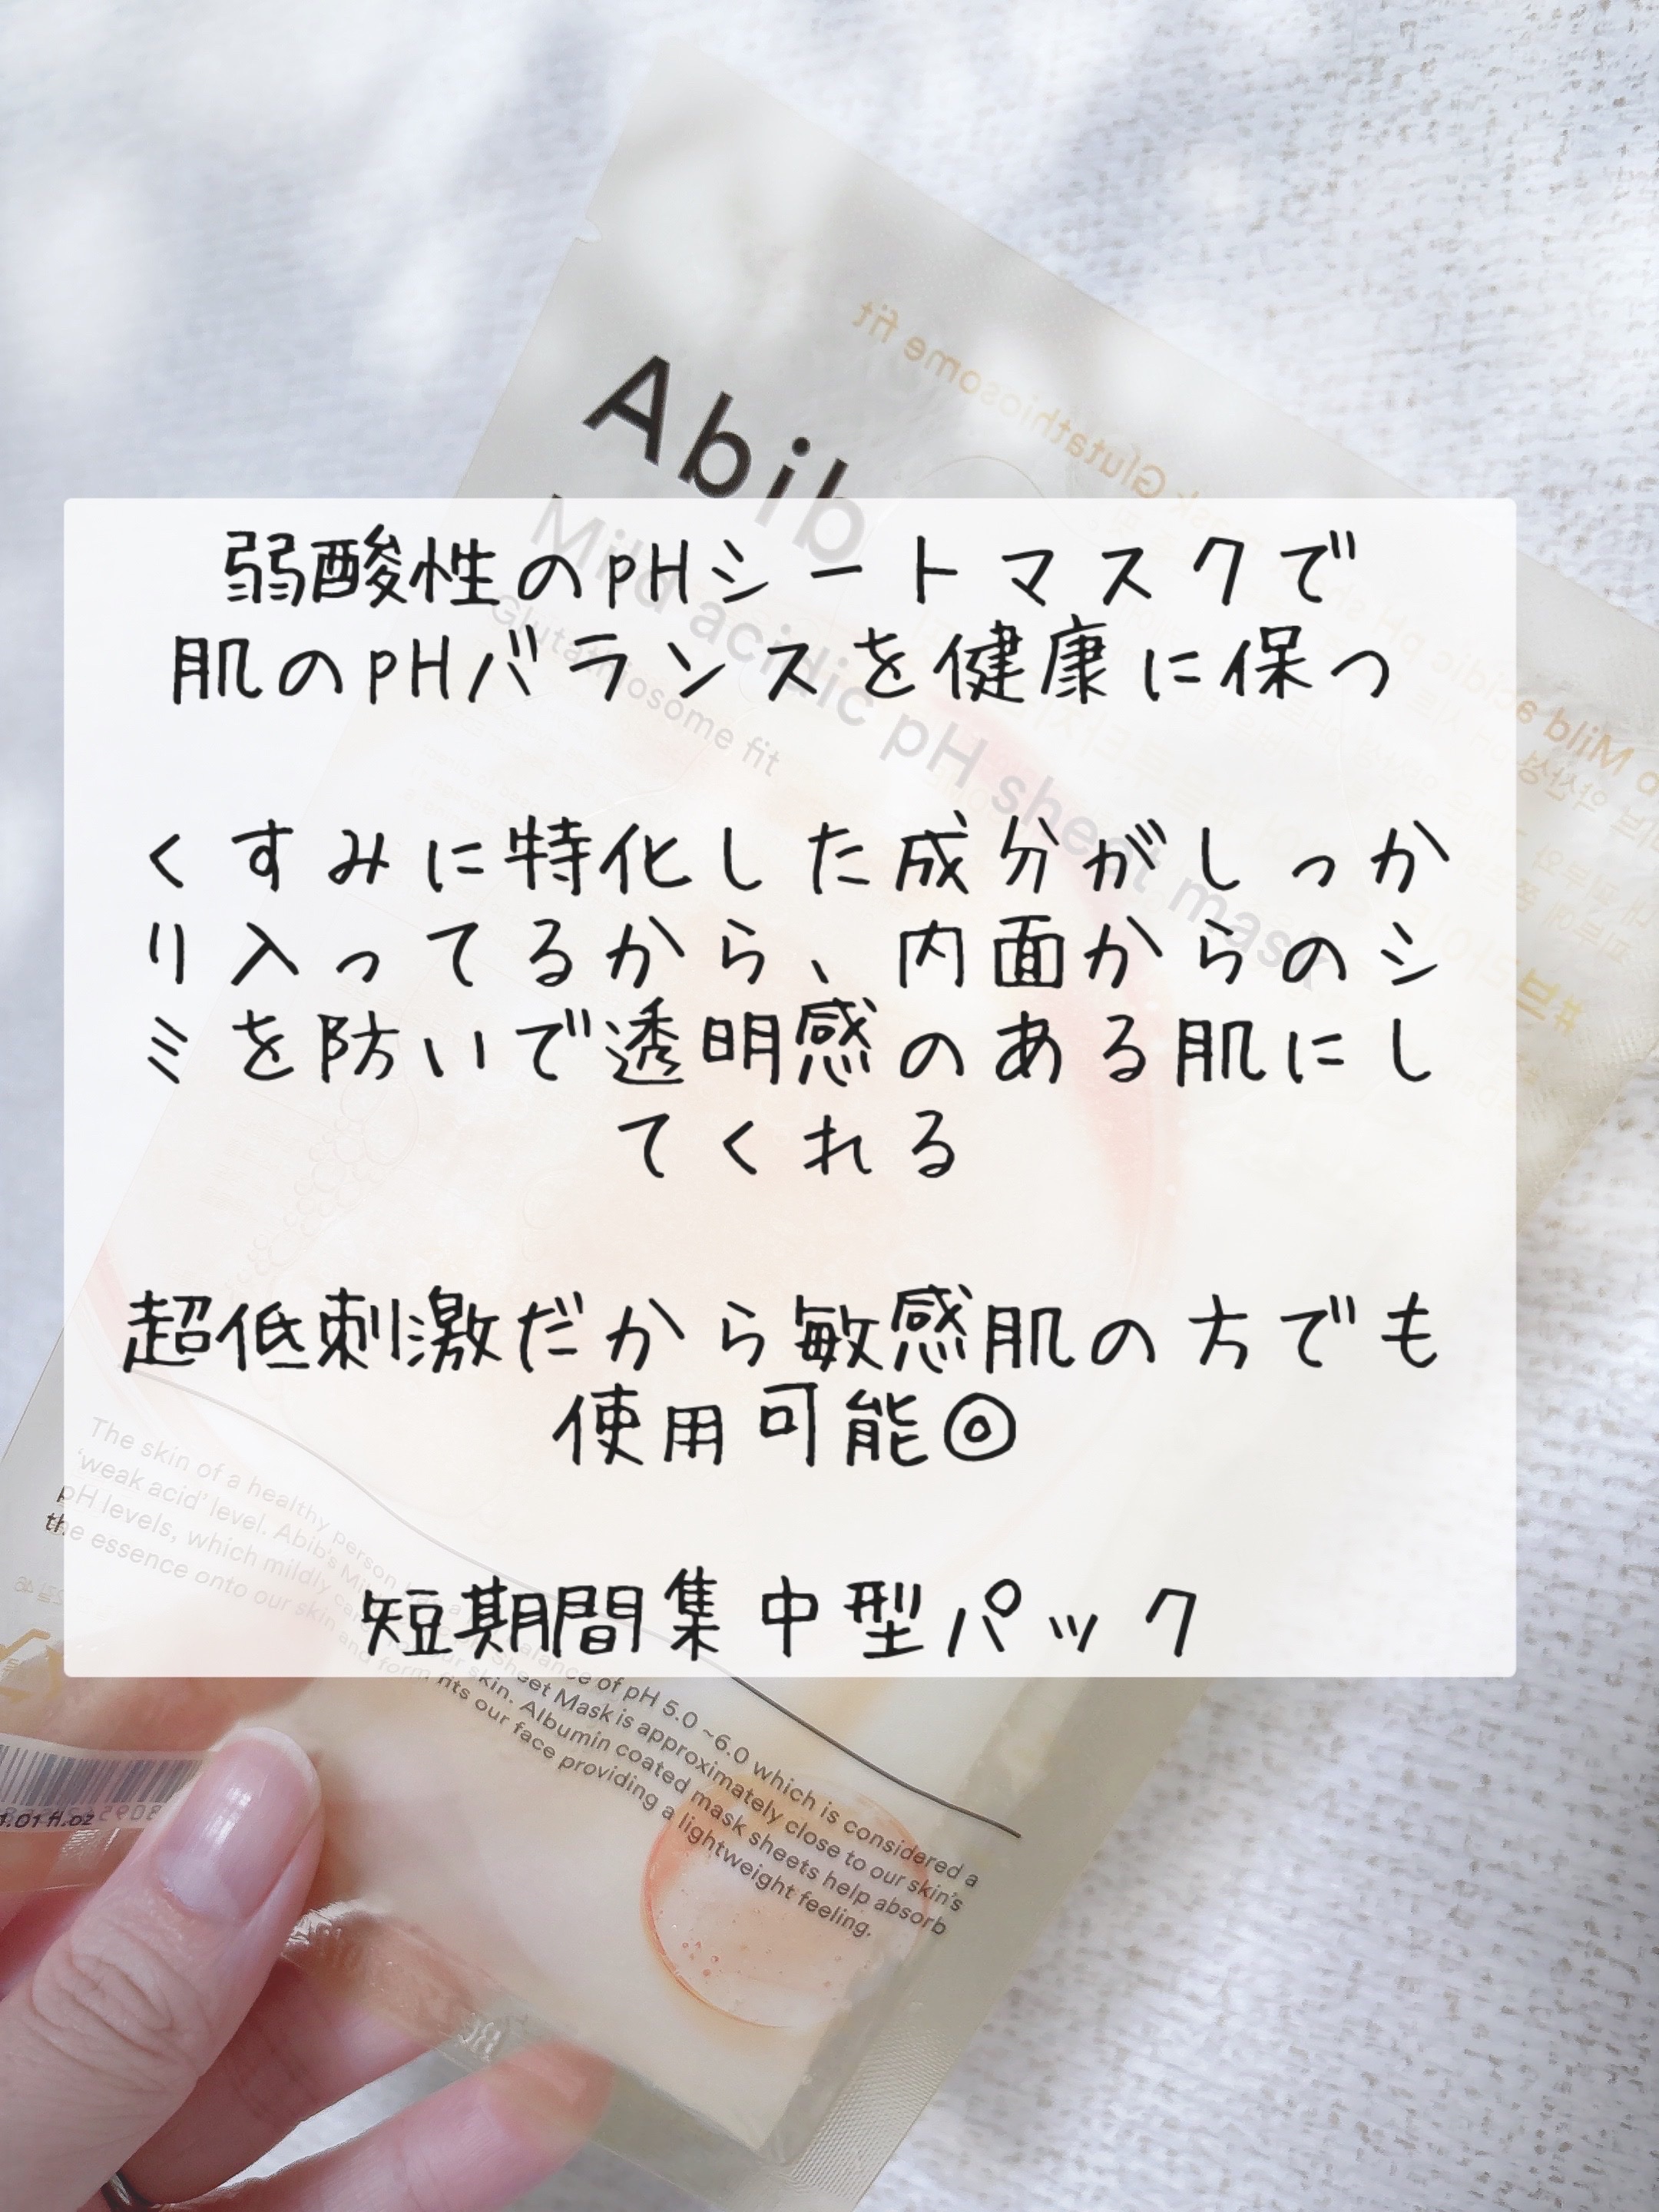 Abib
Mild acidic pH sheet mask
Glutathiosome fit
弱酸性のpHシートマスクで
肌のpHバランスを健康に保つ
くすみに特化した成分がしっか
り入ってるから、内面からのシ
ミを防いで透明感のある肌にし
てくれる
超低刺激だから敏感肌の方でも
使用可能◎
短期間集中型パック
The skin of a healthy person has a balance of pH 5.0 ~6.0 which is considered a
‘weak acid’ level. Abib's Mild Sheet Mask is approximately close to our skin's
pH levels, which mildly care for our skin. Albumin coated mask sheets help absorb
the essence onto our skin and form fits our face providing a lightweight feeling.
1.01 fl.oz